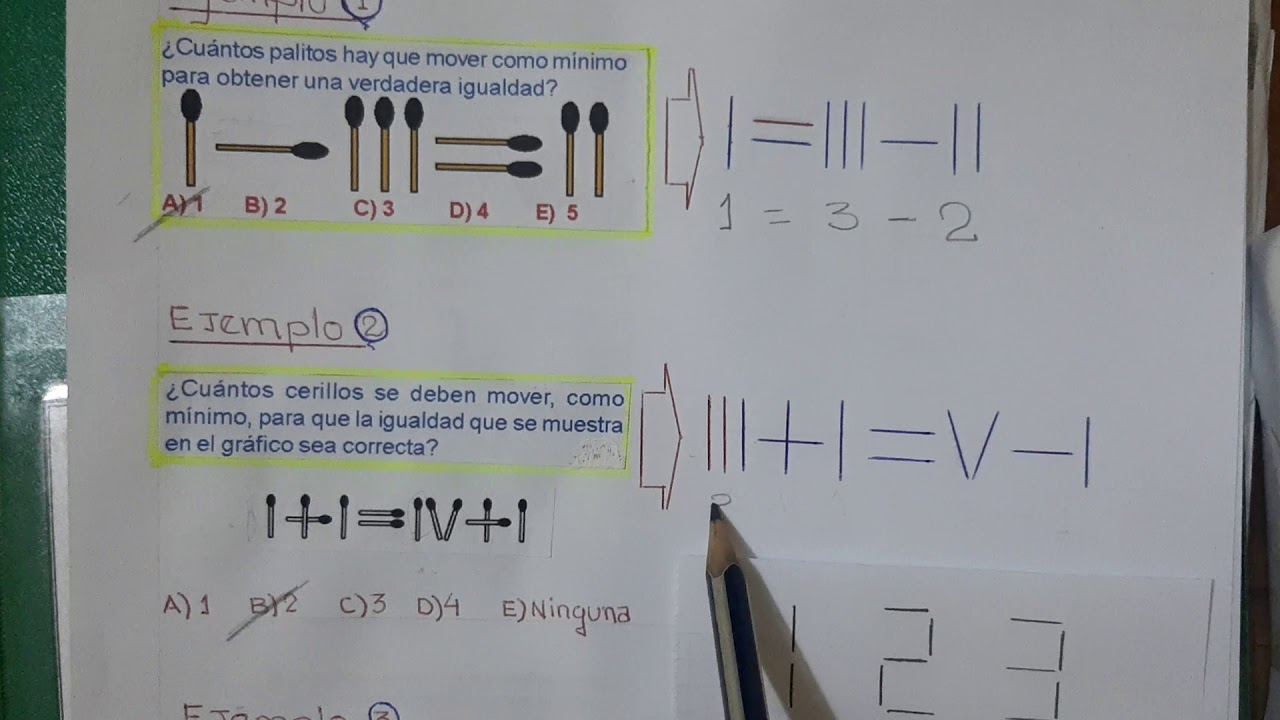 Ejemplo 1
¿Cuántos palitos hay que mover como mínimo
para obtener una verdadera igualdad?
A) 1 B) 2 C) 3 D) 4 E) 5
| = ||| — ||
1 = 3 - 2
Ejemplo 2
¿Cuántos cerillos se deben mover, como
mínimo, para que la igualdad que se muestra
en el gráfico sea correcta?
||| + | = V — |
I + I = IV + I
A) 1 B) 2 C) 3 D) 4 E) Ninguna
1 2 3
Ejemplo 3